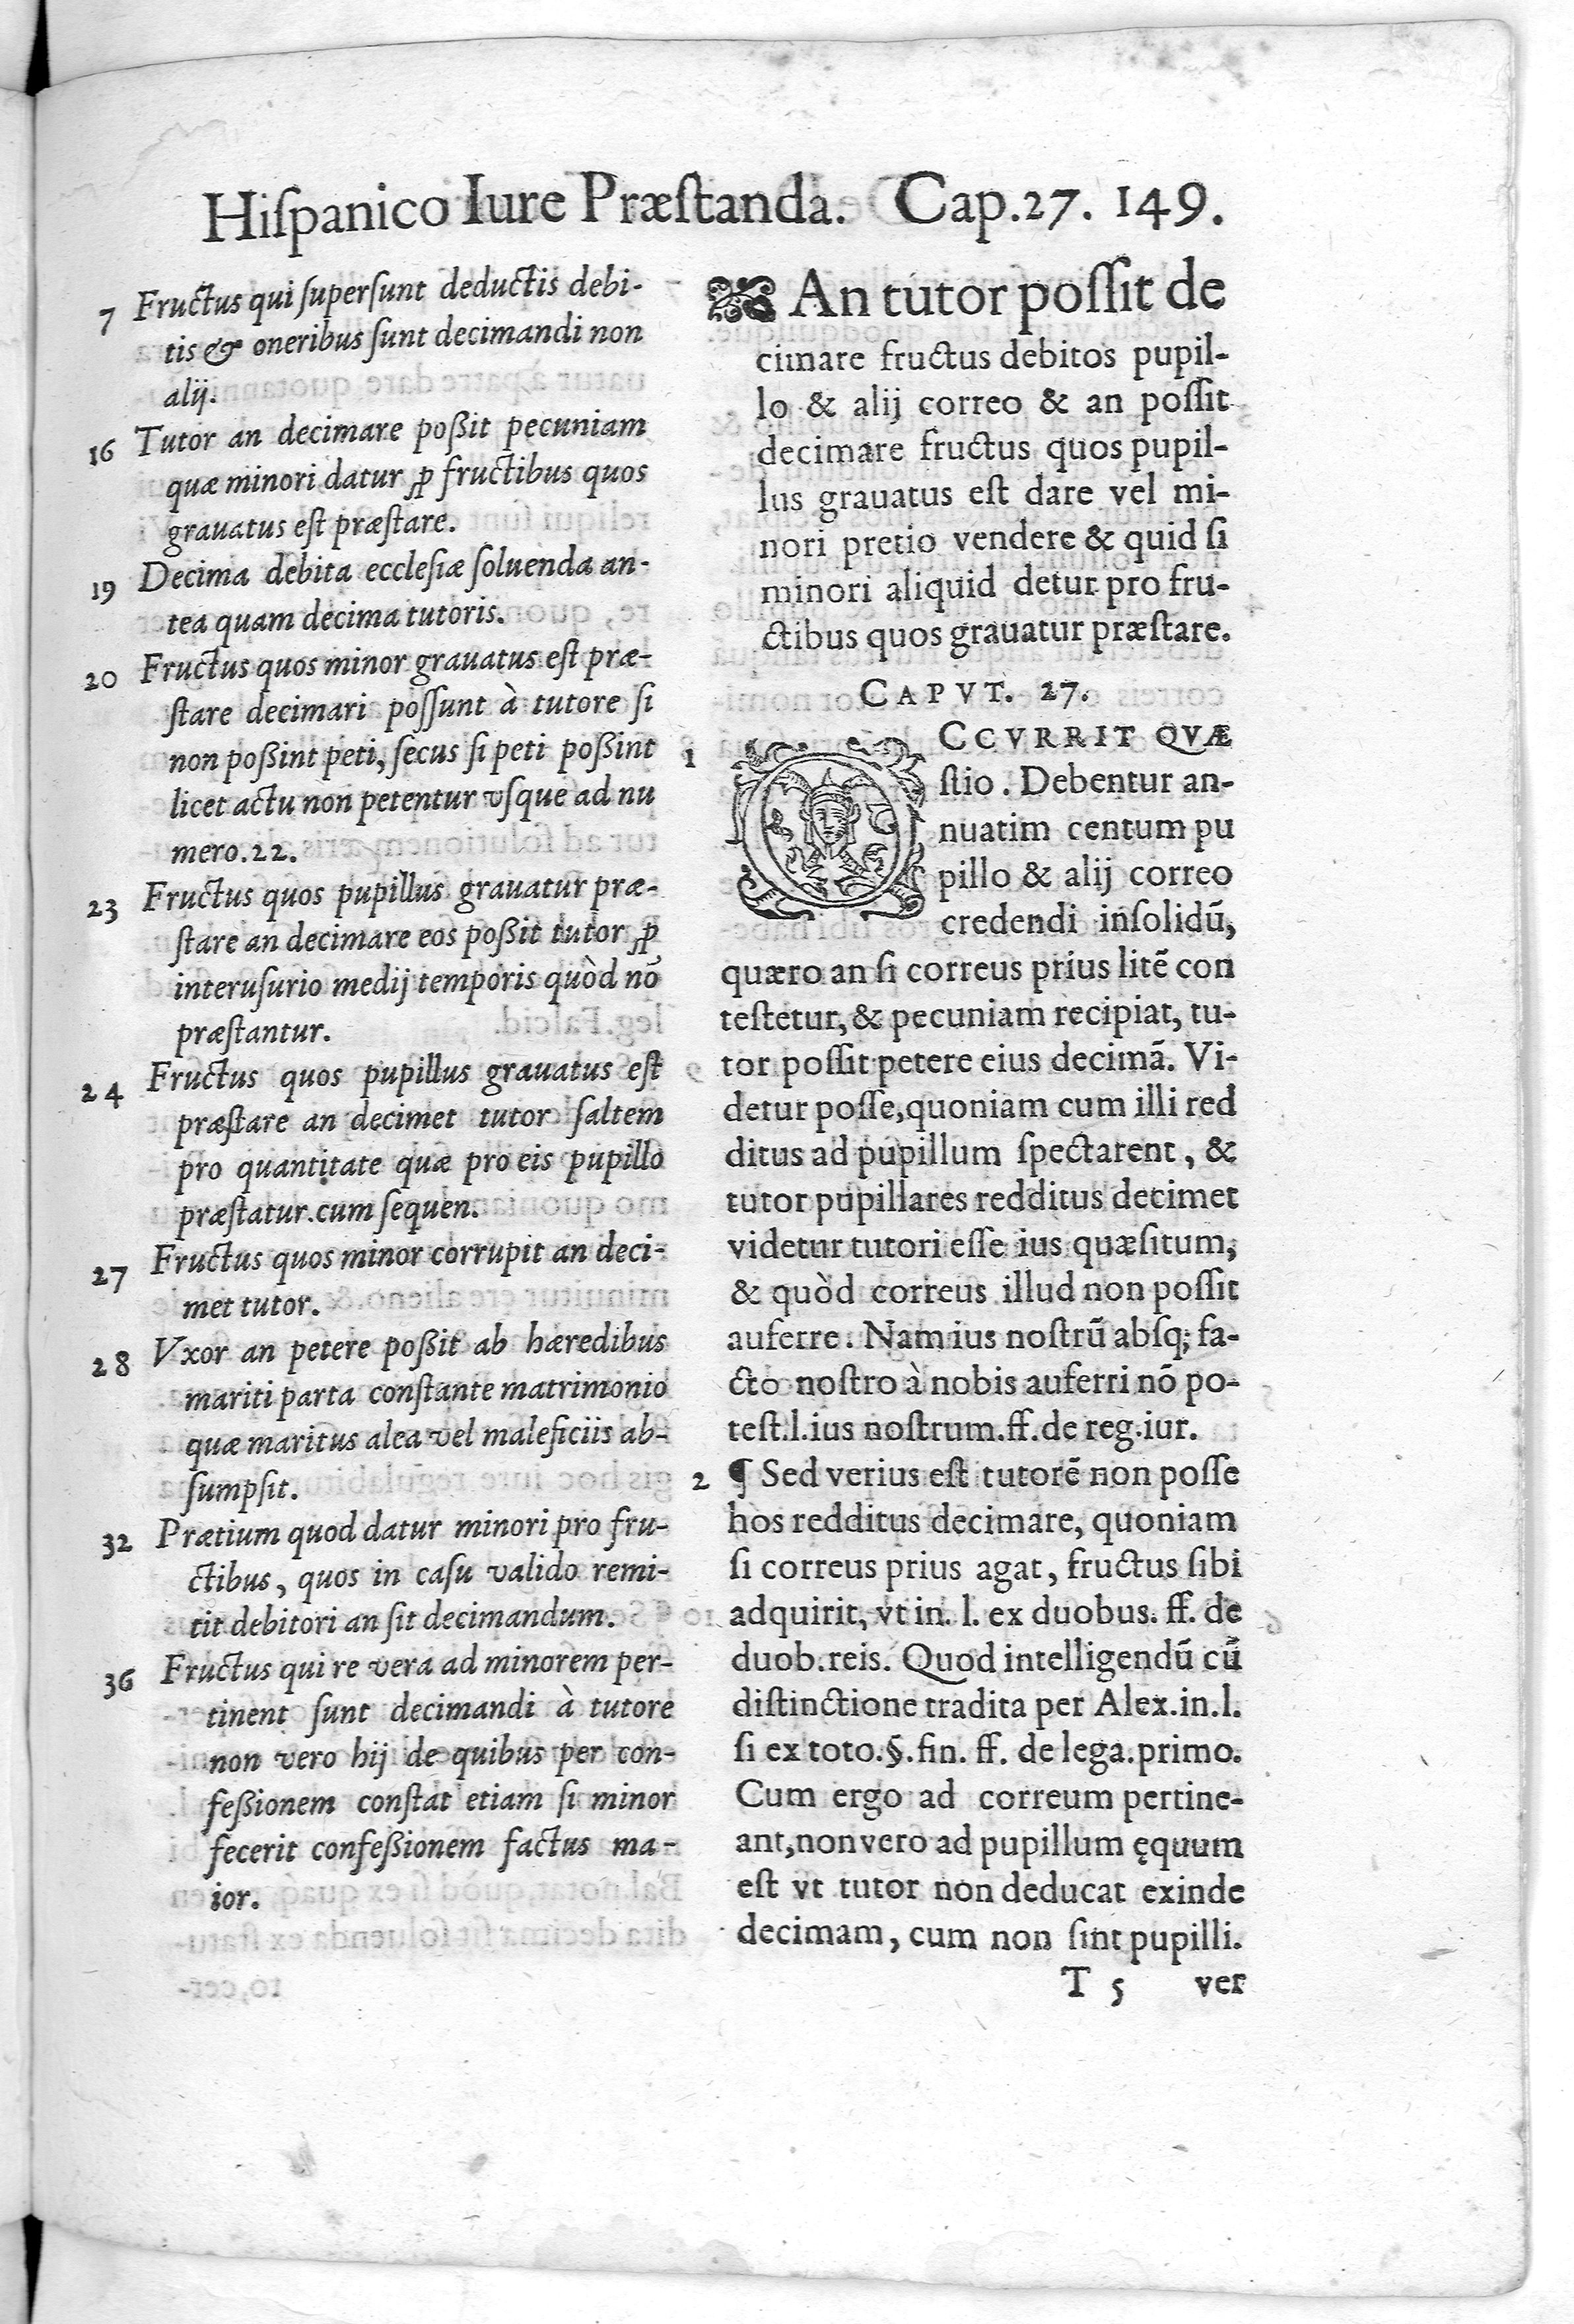 Hiſpanico Iure Præſtanda. Cap.27. 149.
7 Fructus qui ſuperſunt deductis debi-
tis & oneribus ſunt decimandi non
alij.
16 Tutor an decimare poßit pecuniam
quæ minori datur ꝓ fructibus quos
grauatus eſt præſtare.
19 Decima debita eccleſiæ ſoluenda an-
tea quam decima tutoris.
20 Fructus quos minor grauatus eſt præ-
ſtare decimari poſſunt à tutore ſi
non poßint peti, ſecus ſi peti poßint
licet actu non petentur vſque ad nu
mero.22.
23 Fructus quos pupillus grauatur præ-
ſtare an decimare eos poßit tutor ꝓ
interuſurio medij temporis quòd nō
præſtantur.
24 Fructus quos pupillus grauatus eſt
præſtare an decimet tutor ſaltem
pro quantitate quæ pro eis pupillo
præſtatur.cum ſequen.
27 Fructus quos minor corrupit an deci-
met tutor.
28 Vxor an petere poßit ab hæredibus
mariti parta conſtante matrimonio
quæ maritus alea vel maleficiis ab-
ſumpſit.
32 Prætium quod datur minori pro fru-
ctibus, quos in caſu valido remi-
tit debitori an ſit decimandum.
36 Fructus qui re vera ad minorem per-
tinent ſunt decimandi à tutore
non vero hij de quibus per con-
feßionem conſtat etiam ſi minor
fecerit confeßionem factus ma-
ior.
An tutor poſſit de
cimare fructus debitos pupil-
lo & alij correo & an poſſit
decimare fructus quos pupil-
lus grauatus eſt dare vel mi-
nori pretio vendere & quid ſi
minori aliquid detur pro fru-
ctibus quos grauatur præſtare.
CAPVT. 27.
1 OCCVRRIT QVÆ
ſtio. Debentur an-
nuatim centum pu
pillo & alij correo
credendi inſolidū,
quæro an ſi correus prius litē con
teſtetur, & pecuniam recipiat, tu-
tor poſſit petere eius decimā. Vi-
detur poſſe,quoniam cum illi red
ditus ad pupillum ſpectarent, &
tutor pupillares redditus decimet
videtur tutori eſſe ius quæſitum,
& quòd correus illud non poſſit
auferre. Nam ius noſtrū abſq; fa-
cto noſtro à nobis auferri nō po-
teſt.l.ius noſtrum.ff.de reg.iur.
2 ¶ Sed verius eſt tutorē non poſſe
hos redditus decimare, quoniam
ſi correus prius agat, fructus ſibi
adquirit, vt in. l. ex duobus. ff. de
duob.reis. Quod intelligendū cū
diſtinctione tradita per Alex.in.l.
ſi ex toto.§.fin. ff. de lega.primo.
Cum ergo ad correum pertine-
ant,non vero ad pupillum ęquum
eſt vt tutor non deducat exinde
decimam, cum non ſint pupilli.
T 5 ver